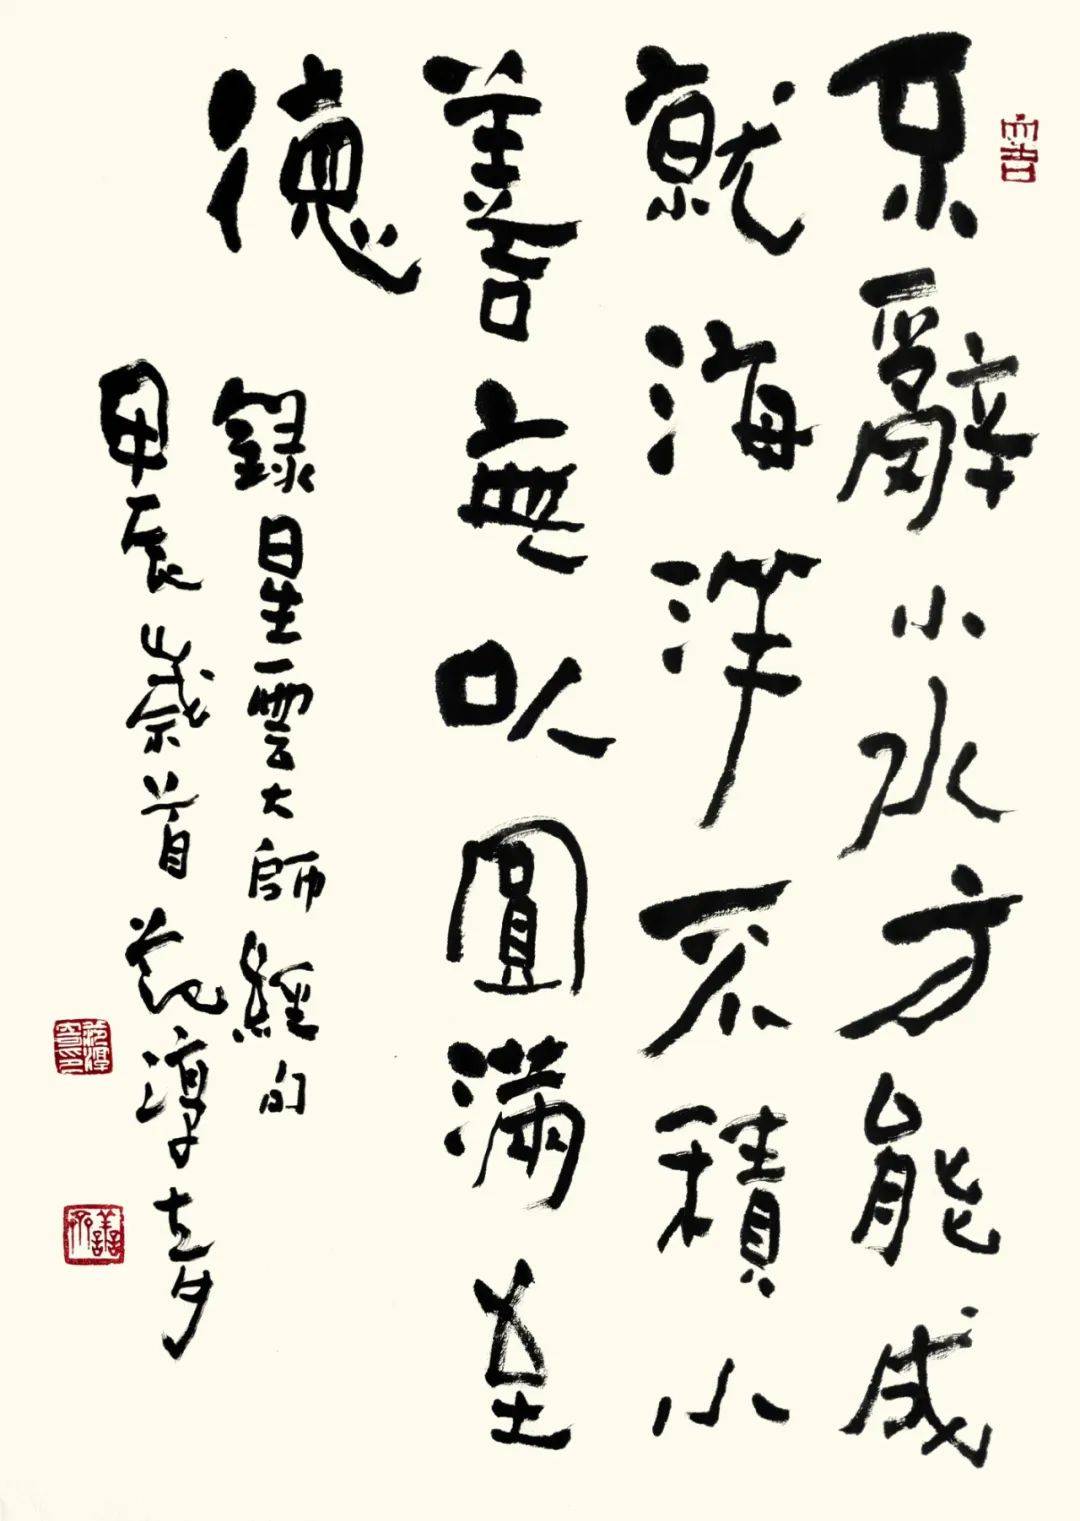 不辭小水方能成
就海洋不積小
善無以圓滿至
德
錄星雲大師經句
甲辰歲首 范淳奇
大吉